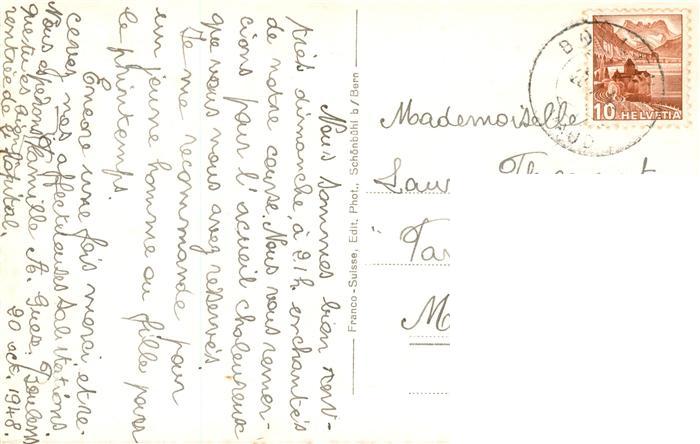 Nous sommes bien ren-
trés dimanche, à 21h. enchantés
de notre course. Nous vous remer-
cions pour l'accueil chaleureux
que vous nous avez réservés
Je me recommande pour
un jeune homme ou fille pour
le printemps.
Encore une fois merci et re-
cevez nos affectueuses salutations
Nous espérons
Famille A. Gues.
que tu es
rentrée de l'hôpital.
20 oct. 1948.
Franco-Suisse, Edit. Phot., Schönbühl b/Bern
Mademoiselle
10 HELVETIA